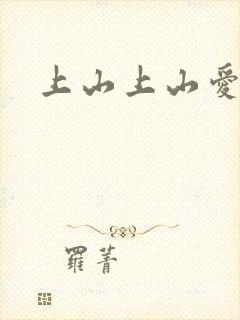 上山上山愛
羅菁